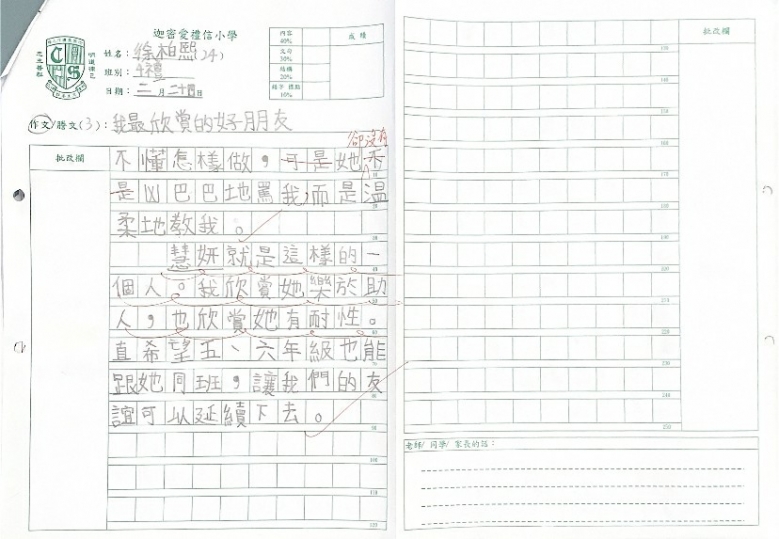 迦密愛禮信小學
明道律己
忠主善群
姓名：徐柏熙(24)
班別：4禮
日期：二月二十四日
內容 40%
成績
文句 30%
結構 20%
10%
作文/謄文(3)：我最欣賞的好朋友
批改欄
卻沒有
不懂怎樣做，可是她不
是凶巴巴地罵我，而是溫
柔地教我。
慧妍就是這樣的一
個人。我欣賞她樂於助
人，也欣賞她有耐性。
直希望五、六年級也能
跟她同班，讓我們的友
誼可以延續下去。
批改欄
老師/ 同學/ 家長的話：